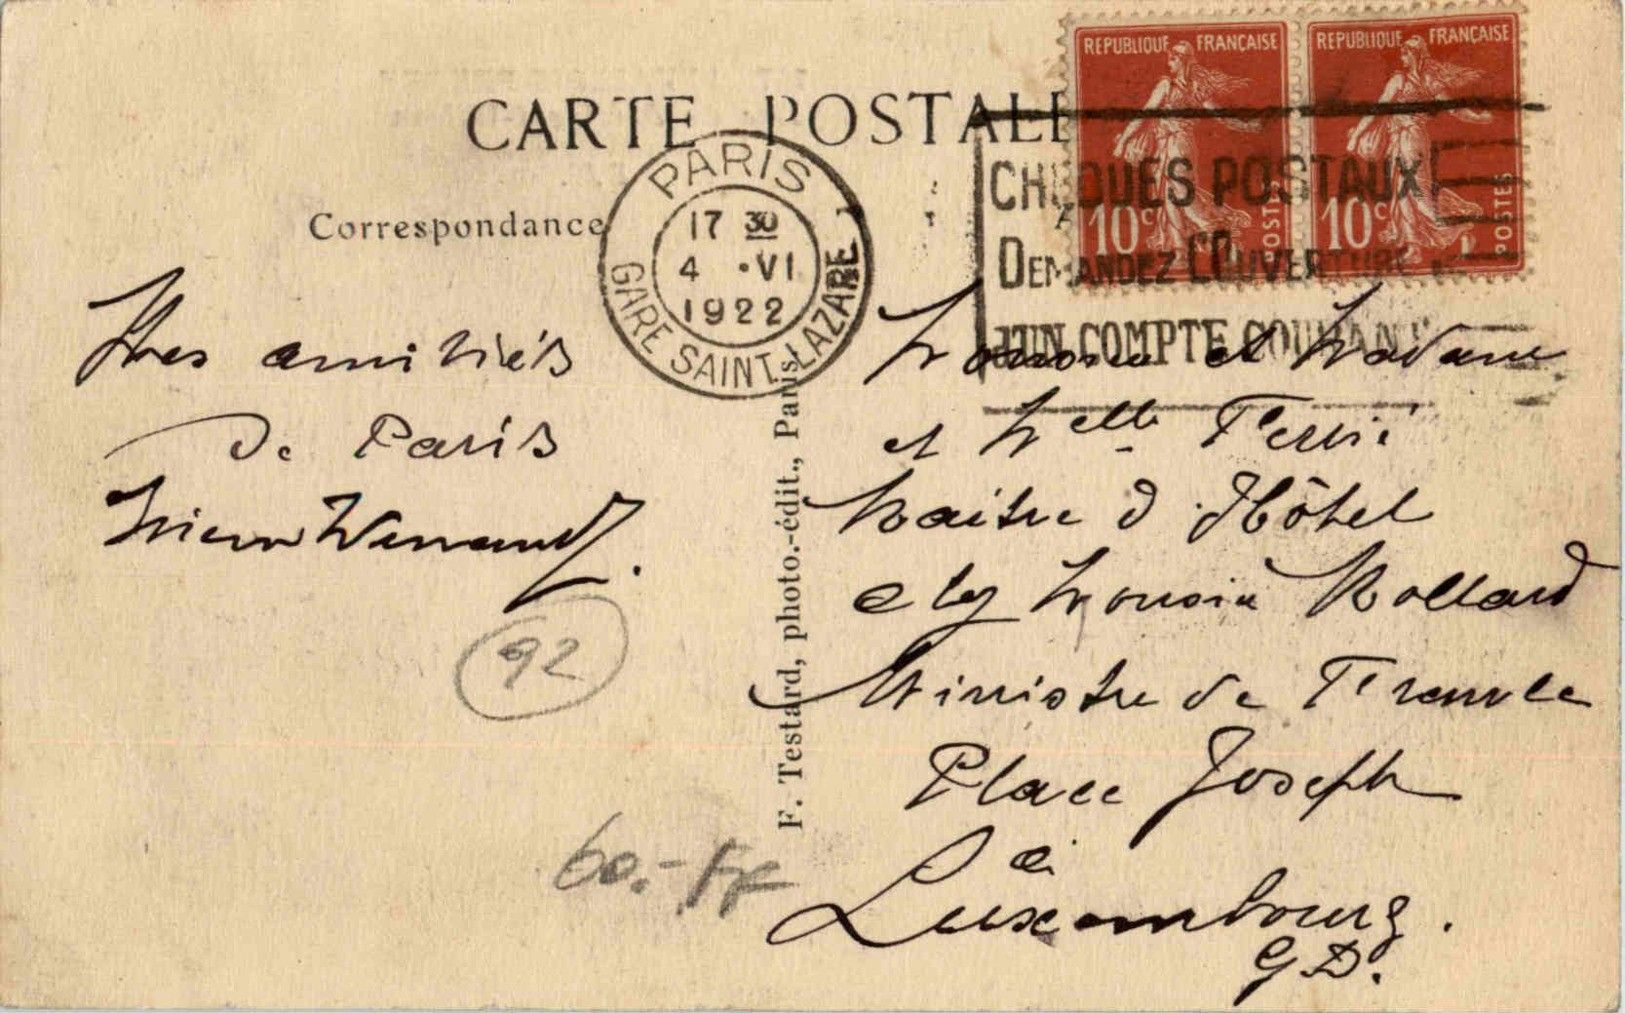 REPUBLIQUE FRANÇAISE
10c POSTES
REPUBLIQUE FRANÇAISE
10c POSTES
CARTE POSTALE
PARIS
17 30
4 ·VI
1922
GARE SAINT-LAZARE
CHEQUES POSTAUX
DEMANDEZ L'OUVERTURE
D'UN COMPTE COURANT
Correspondance
Mes amitiés
de Paris
92
60.- Fr
F. Testard, photo.-édit., Paris.
Monsieur et Madame
et Melle
Maître d'Hôtel
chez Monsieur Mollard
Ministre de France
Place Joseph
à
Luxembourg.
G D.